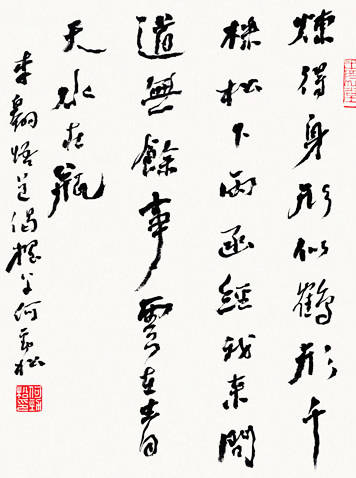 煉得身形似鶴形千
株松下兩函經我來問
道無餘事雲在青
天水在瓶
李翱悟道偈 何勁松